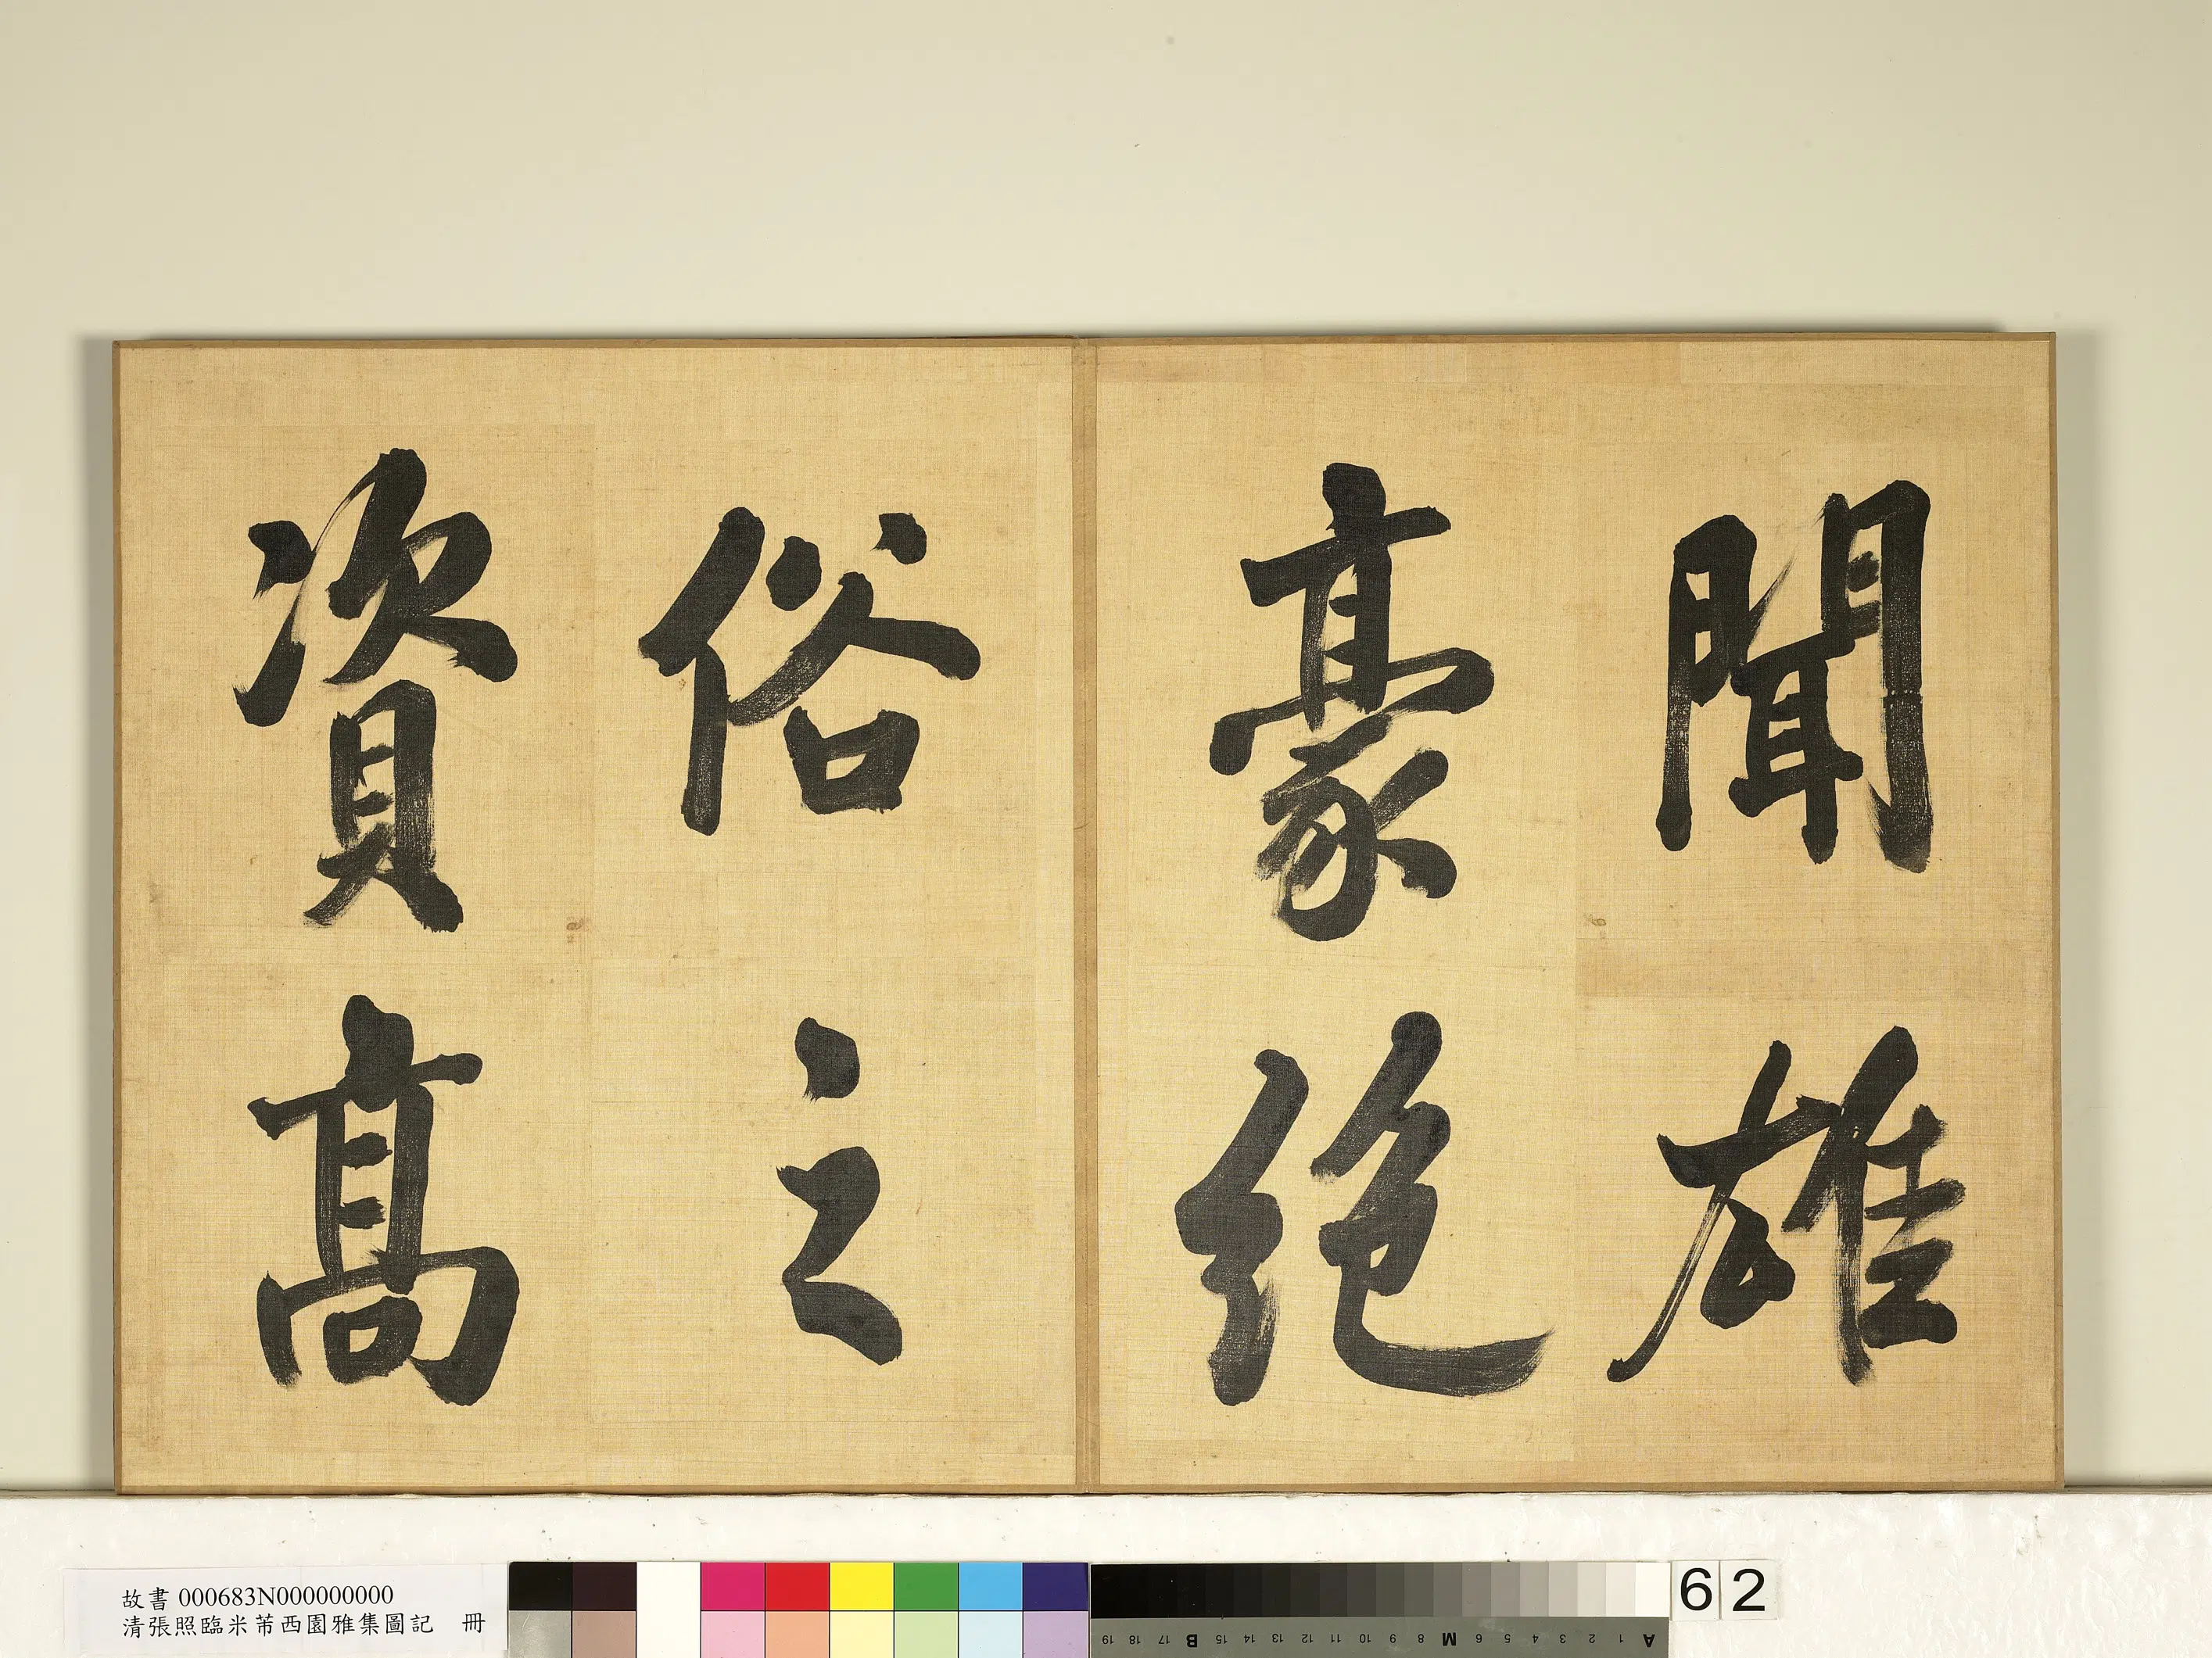 聞雄
豪絕
俗之
資高
故書 000683N000000000
清張照臨米芾西園雅集圖記 冊
62
19 18 17 B 15 14 13 12 11 10 9 8 M 6 5 4 3 2 1 A